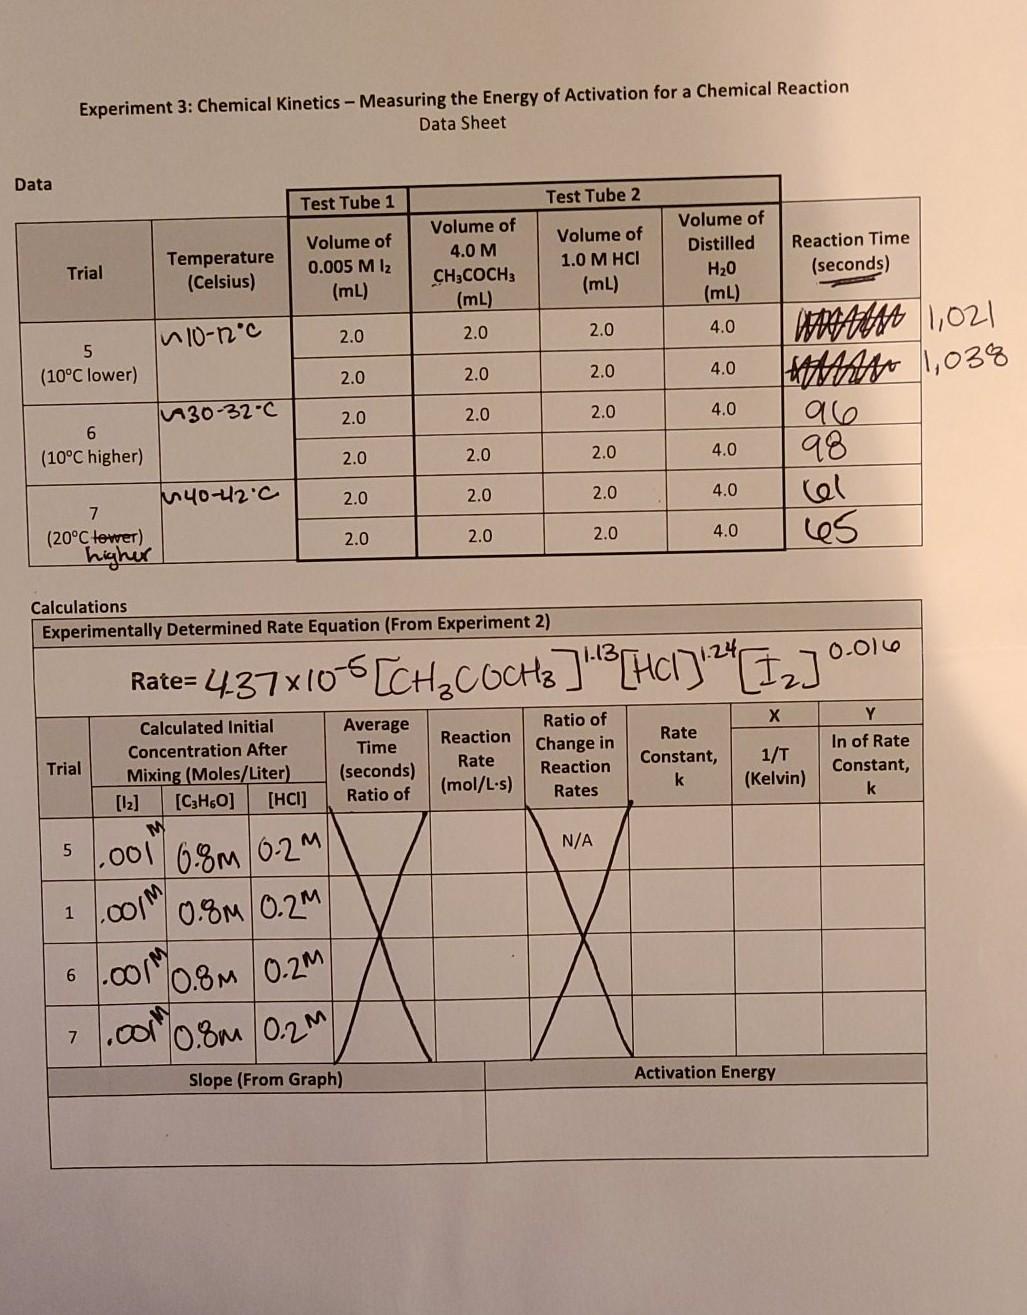 Experiment 3: Chemical Kinetics – Measuring the Energy of Activation for a Chemical Reaction
Data Sheet
Data
Test Tube 1 Test Tube 2
Trial Temperature (Celsius) Volume of 0.005 M I₂ (mL) Volume of 4.0 M CH₃COCH₃ (mL) Volume of 1.0 M HCl (mL) Volume of Distilled H₂O (mL) Reaction Time (seconds)
5 (10°C lower) ~10-12°C 2.0 2.0 2.0 4.0 1,021
2.0 2.0 2.0 4.0 1,038
6 (10°C higher) ~30-32°C 2.0 2.0 2.0 4.0 96
2.0 2.0 2.0 4.0 98
7 (20°C lower) higher ~40-42°C 2.0 2.0 2.0 4.0 61
2.0 2.0 2.0 4.0 65
Calculations
Experimentally Determined Rate Equation (From Experiment 2)
Rate= 4.37x10⁻⁵ [CH₃COCH₃]¹·¹³ [HCl]¹·²⁴ [I₂]⁰·⁰¹⁶
Trial Calculated Initial Concentration After Mixing (Moles/Liter) Average Time (seconds) Ratio of Reaction Rate (mol/L·s) Ratio of Change in Reaction Rates Rate Constant, k X 1/T (Kelvin) Y ln of Rate Constant, k
[I₂] [C₃H₆O] [HCl]
5 .001M 0.8M 0.2M N/A
1 .001M 0.8M 0.2M
6 .001M 0.8M 0.2M
7 .001M 0.8M 0.2M
Slope (From Graph) Activation Energy